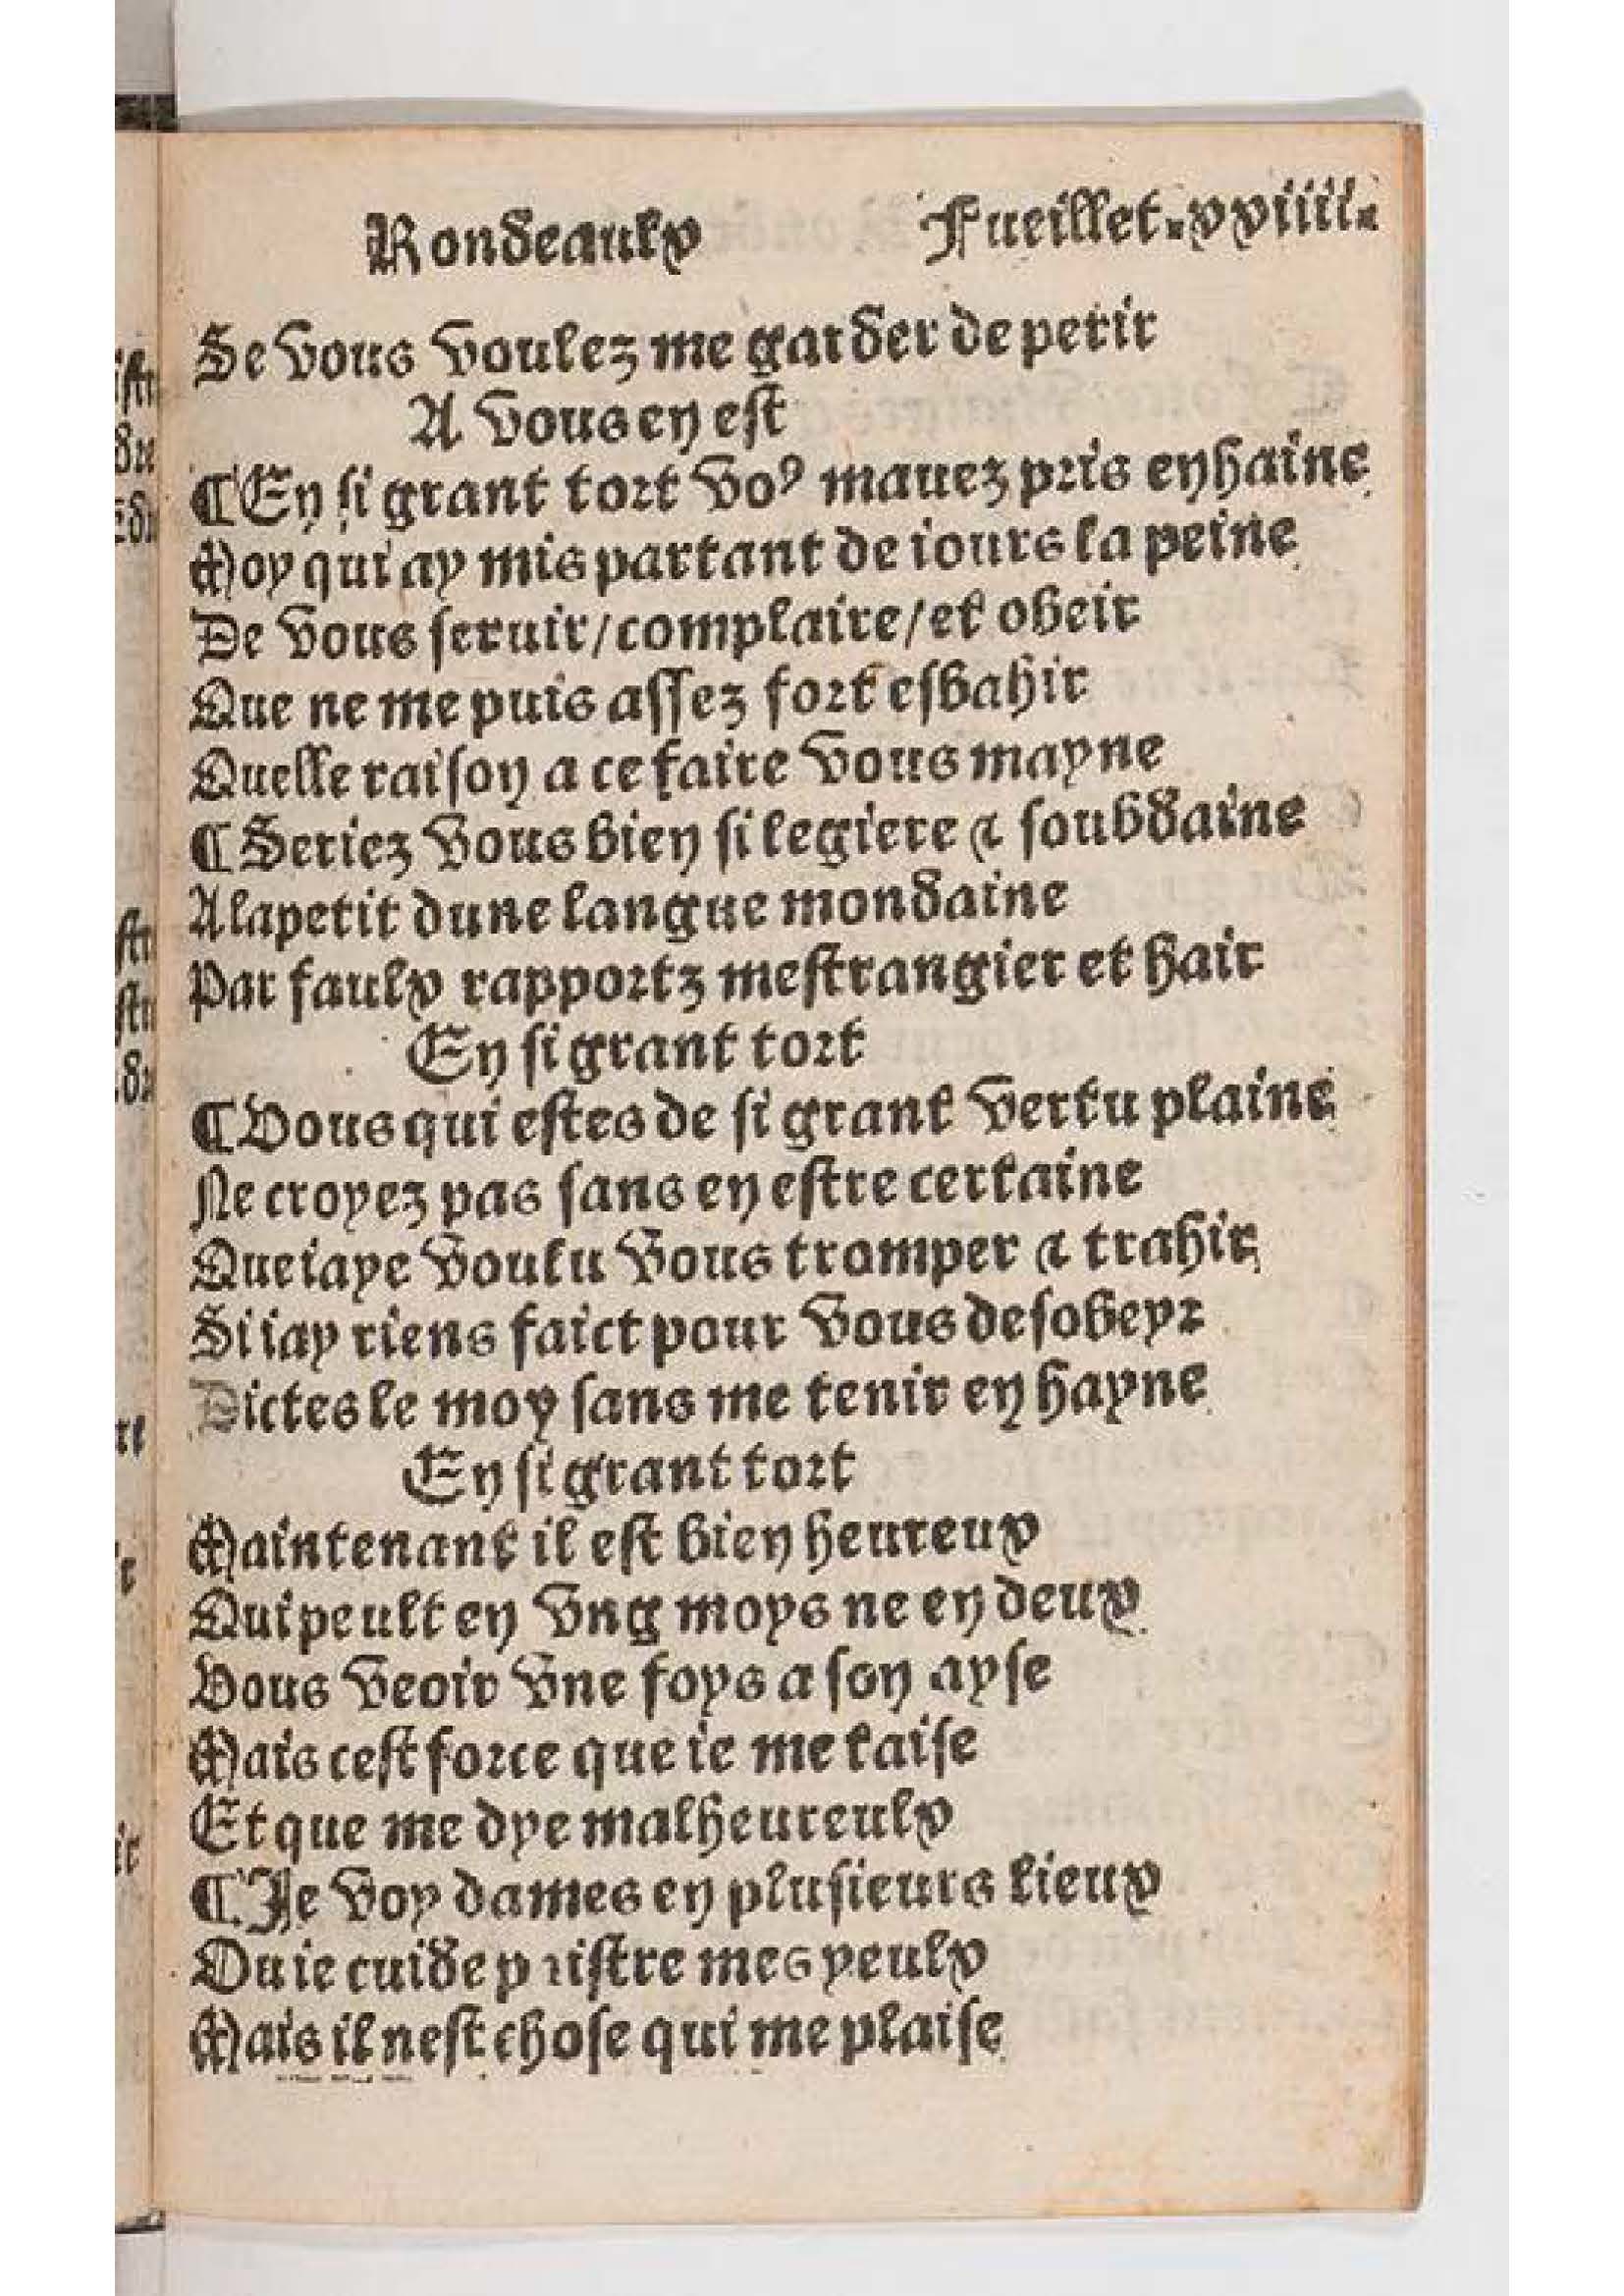 Rondeaulx Fueillet.xxiiii.
Se vous voulez me garder de perir
A vous en est
¶En si grant tort voꝰ mauez pris en haine
Moy qui ay mis par tant de iours la peine
De vous seruir/complaire/et obeir
Que ne me puis assez fort esbahir
Quelle raison a ce faire vous mayne
¶Seriez vous bien si legiere ⁊ soubdaine
A lapetit dune langue mondaine
Par faulx rapportz mestrangier et hair
En si grant tort
¶Vous qui estes de si grant vertu plaine
Ne croyez pas sans en estre certaine
Que iaye voulu vous tromper ⁊ trahir
Si iay riens faict pour vous desobeyr
Dictes le moy sans me tenir en hayne
En si grant tort
Maintenant il est bien heureux
Qui peult en vng moys ne en deux
Vous veoir vne foys a son ayse
Mais cest force que ie me taise
Et que me dye malheureulx
¶Je voy dames en plusieurs lieux
Ou ie cuide paistre mes yeulx
Mais il nest chose qui me plaise